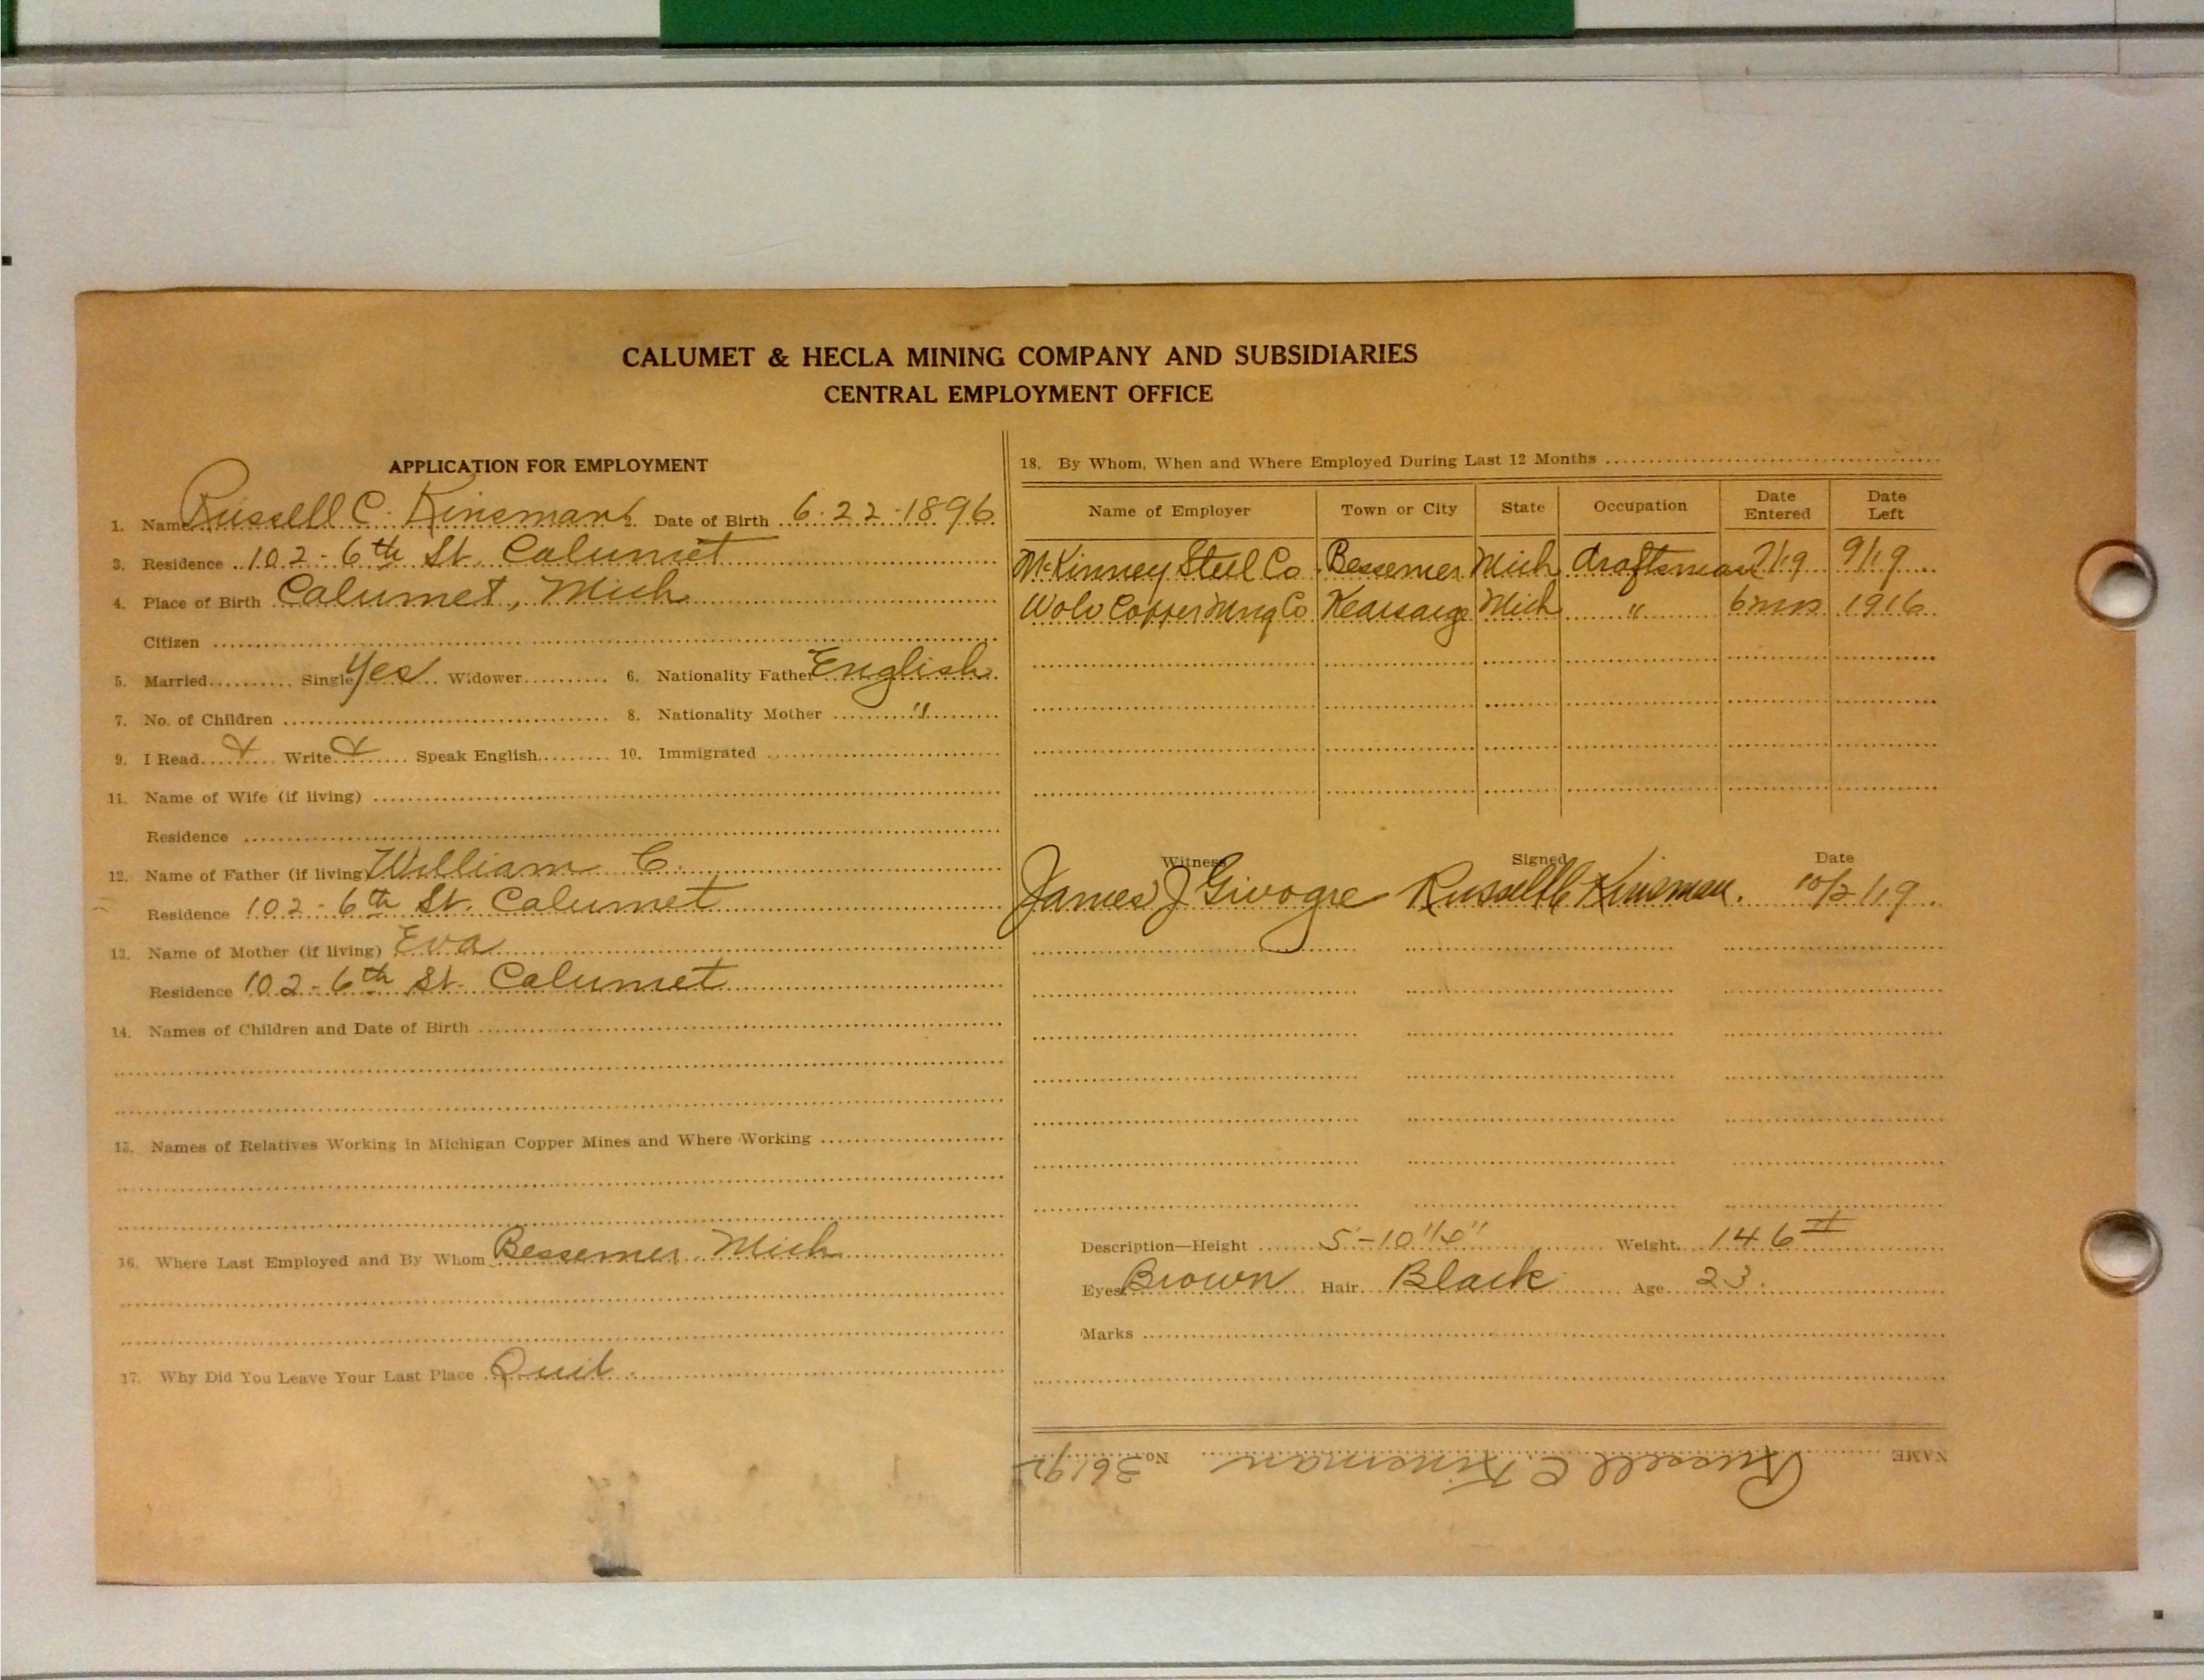 CALUMET & HECLA MINING COMPANY AND SUBSIDIARIES
CENTRAL EMPLOYMENT OFFICE
APPLICATION FOR EMPLOYMENT
1. Name Russell C. Kinsman 2. Date of Birth 6-22-1896
3. Residence 102-6th St. Calumet
4. Place of Birth Calumet, Mich
Citizen
5. Married Single Yes Widower 6. Nationality Father English
7. No. of Children 8. Nationality Mother "
9. I Read Write Speak English 10. Immigrated
11. Name of Wife (if living)
Residence
12. Name of Father (if living) William C.
Residence 102-6th St. Calumet
13. Name of Mother (if living) Eva
Residence 102-6th St. Calumet
14. Names of Children and Date of Birth
15. Names of Relatives Working in Michigan Copper Mines and Where Working
16. Where Last Employed and By Whom Bessemer, Mich
17. Why Did You Leave Your Last Place Quit
18. By Whom, When and Where Employed During Last 12 Months
Name of Employer Town or City State Occupation Date Entered Date Left
McKinney Steel Co. Bessemer Mich draftsman 7/19 9/19
Wolv Copper Mng Co Kearsarge Mich " 6 mos 1916
Witness Signed Date
James J Givogre Russell C Kinsman. 10/2/19.
Description—Height 5-10 1/4" Weight 146 #
Eyes Brown Hair Black Age 23.
Marks
NAME Russell C. Kinsman No. 36192